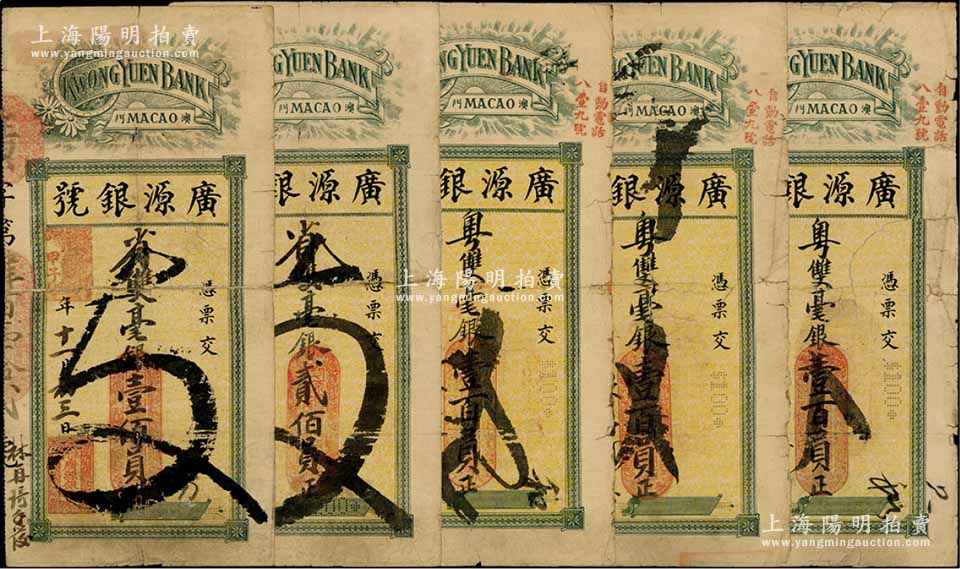 上海陽明拍賣
www.yangmingauction.com
KWONG YUEN BANK
門 MACAO 澳
號銀源廣
憑票交
雙毫銀壹佰員
甲子
年十一月
三日
YUEN BANK
門 MACAO 澳
銀源廣
憑票交
雙毫銀貳佰員正
ONG YUEN BANK
門 MACAO 澳
自動電話
八壹九號
銀源廣
憑票交
粵雙毫銀壹百員正
$100
上海陽明拍賣
www.yangmingauction.com
NG YUEN BANK
門 MACAO 澳
自動電話
八壹九號
銀源廣
憑票交
粵雙毫銀壹百員正
$100
YUEN BANK
門 MACAO 澳
自動電話
八壹九號
銀源廣
憑票交
粵雙毫銀壹百員正
$100
上海陽明拍賣
www.yangmingauction.com